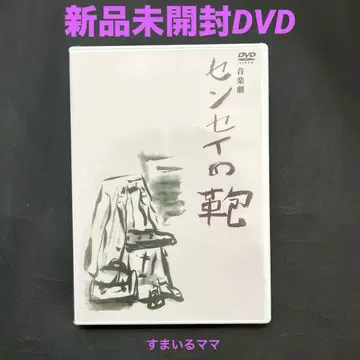 新品未開封DVD
DVD
VIDEO
音楽劇
センセイの鞄
すまいるママ